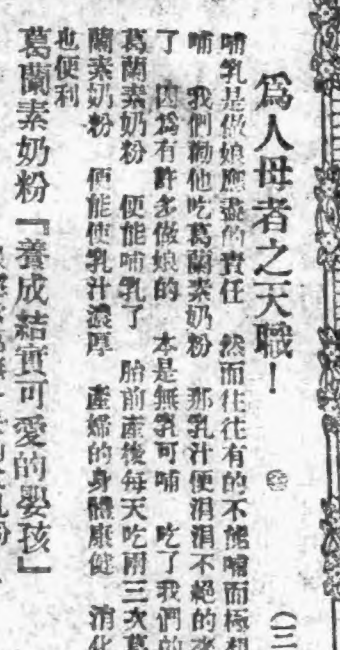 為人母者之天職！
（三
哺乳是做娘應盡的責任　然而往往有的不能哺而極想
哺　我們勸他吃葛蘭素奶粉　那乳汁便涓涓不絕的來
了　因為有許多做娘的　本是無乳可哺　吃了我們的
葛蘭素奶粉　便能哺乳了　胎前產後每天吃兩三次葛
蘭素奶粉　便能使乳汁濃厚　產婦的身體康健　消化
也便利
葛蘭素奶粉『養成結實可愛的嬰孩』